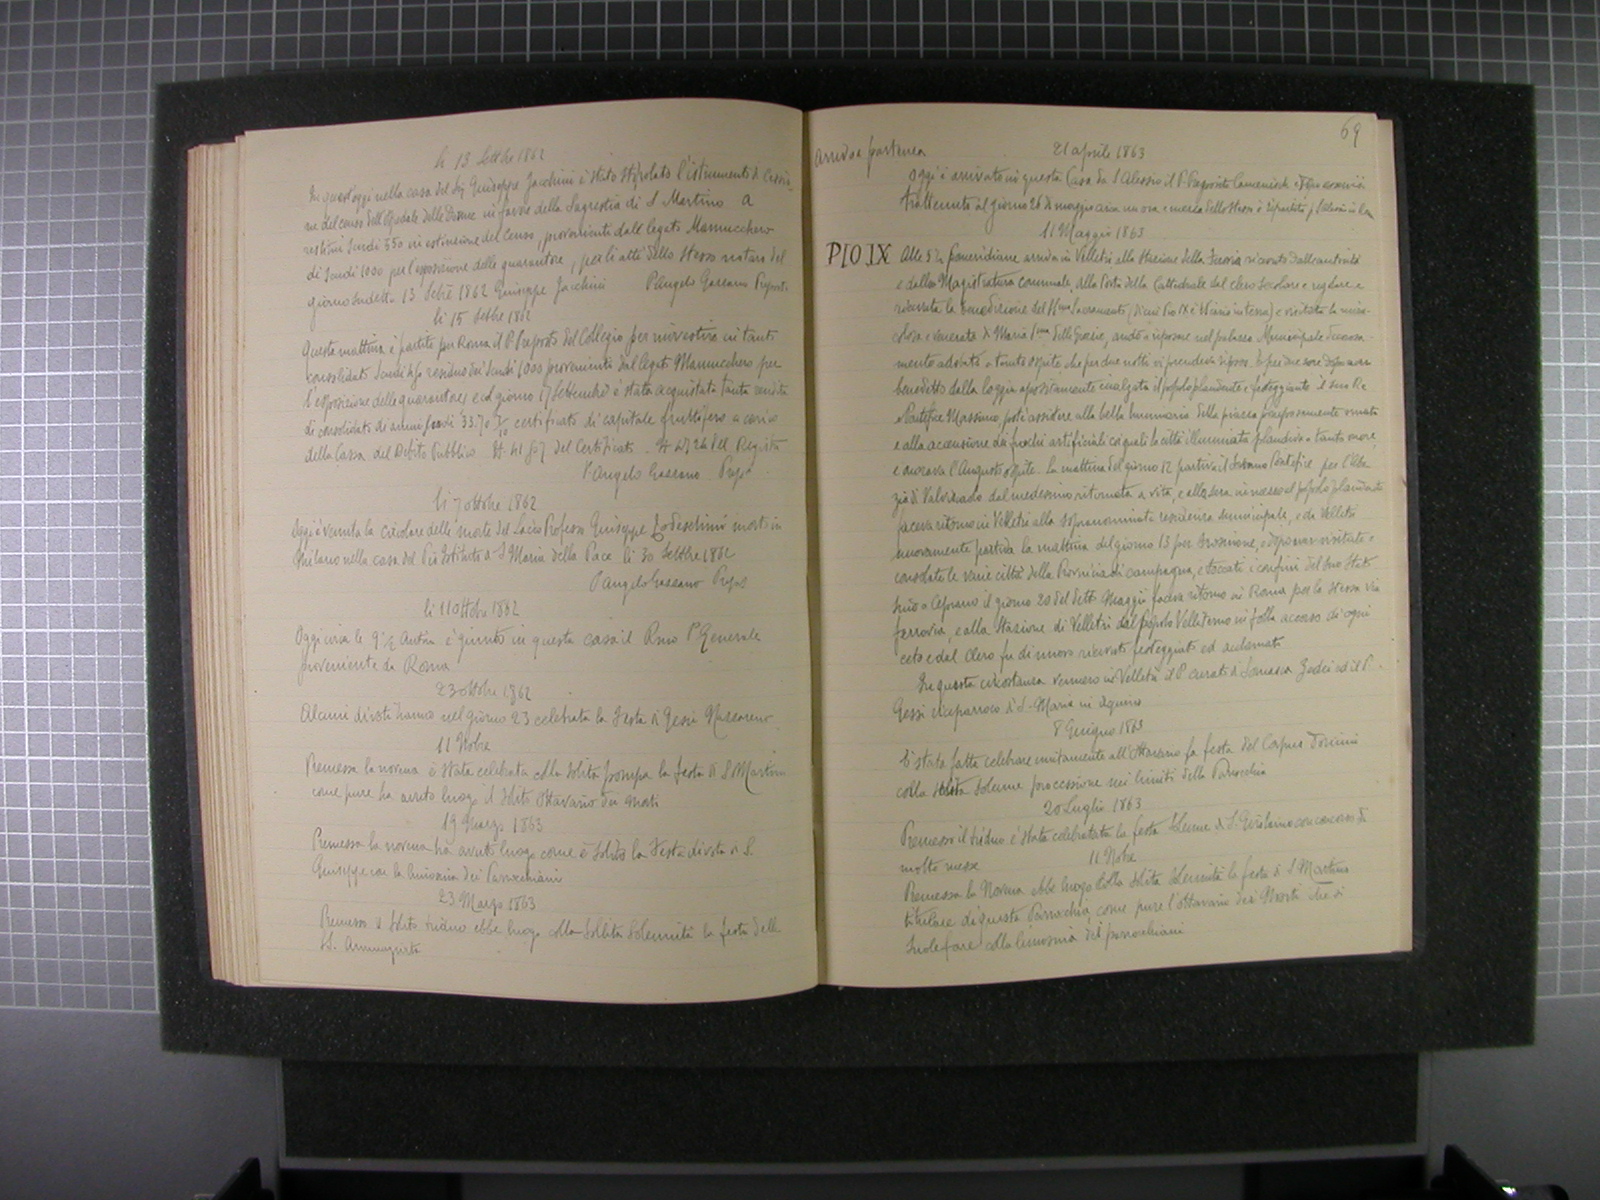 li 13 Settbre 1862
In quest'oggi nella casa del Sig Giuseppe Jacchini è stato stipolato l'istrumento di
ne del censo dell'Ospedale delle Donne in favore della Sagrestia di S Martino a
scudi 550 in estinzione del censo, provenienti dall legato Mannucchero
di Scudi 1000 per l'esposizione delle quarantore, per gli atti dello stesso notaro del
giorno sudetto 13 Setbe 1862 Giuseppe Jacchini P. Angelo Gaessano
li 15 Settbre 1862
Questa mattina è partito per Roma il P. Preposto del Collegio per rinvestire in tanti
consolidati Scudi residuo dei Scudi 1000 provenienti dal legato Mannucchero per
l'esposizione delle quarantore, e nel giorno 17 Settembre è stata acquistata tanta rendita
di consolidato di annui scudi 33.70 certificato di capitale fruttifero a carico
della Cassa del Debito Pubblico del Certificato Registro
P. Angelo Gaessano Prepo
li 7 ottbre 1862
Oggi è venuta la circolare della morte del Laico Professo Giuseppe Todeschini morto in
Milano nella casa del Pio Istituto di S Maria della Pace li 30 Settbre 1862
P Angelo Gaessano Prepos
li 11 Ottbre 1862
Oggi circa le 9 1/2 Antim è giunto in questa casa il Rmo P. Generale
proveniente da Roma
23 ottbre 1862
Alcuni divoti hanno nel giorno 23 celebrata la Festa di Gesù Nazzareno
11 Nobre
Premessa la novena è stata celebrata colla solita pompa la festa di S. Martino
come pure ha avuto luogo il solito Ottavario dei Morti
19 Marzo 1863
Premessa la novena ha avuto luogo come è solito la Festa divota di S.
Giuseppe con la limosina dei Parocchiani
23 Marzo 1863
Premesso il solito triduo ebbe luogo colla sollita solennità la festa della
SS. Annunziata
69
arrivo e partenza
21 aprile 1863
Oggi è arrivato in questa Casa da S Alessio il P. Preposito e dopo essersi
trattenuto al giorno 26 di maggio circa un ora e mezza dello stesso è ripartito
11 Maggio 1863
PIO IX
Alle 5 1/2 pomeridiane arriva in Velletri alla Stazione della Ferrovia ricevuto dalle autorità
e dalla Magistratura comunale, alla Porta della Cattedrale dal clero secolare e regolare e
ricevuta la benedizione del SSmo Sacramento (di cui Pio IX è Vicario in terra) e visitata la mira-
colosa e venerata di Maria SSma delle Grazie, andò a riposare nel palazzo Municipale
mente adobato a tanto ospite, che per due notti vi prendeva riposo. E per due sere dopo aver
benedetto dalla loggia apositamente inalzata il popolo plaudente e festeggiante il suo Re
e Pontefice Massimo, potè assistere alla bella luminaria della piazza pomposamente ornata
e alla accensione dei fuochi artificiali coi quali la città illuminata plaudiva a tanto onore,
e onorava l'Augusto ospite. La mattina del giorno 12 partiva il Sovrano Pontefice per l'Aba-
zia di Valvisciolo dal medesimo ritornata a vita, e alla sera in mezzo al popolo plaudente
faceva ritorno in Velletri alla sopranominata residenza municipale, e da Velletri
nuovamente partiva la mattina del giorno 13 per Frosinone, e dopo aver visitate e
consolate le varie città della Provincia di campagna, e toccati i confini del suo Stato
fino a Ceprano il giorno 20 del detto Maggio faceva ritorno in Roma per la stessa via
ferrovia, e alla Stazione di Velletri dal popolo Velletrano in folla accorso di ogni
ceto e dal Clero fu di nuovo ricevuto festeggiato ed acclamato
In questa circostanza vennero in Velletri il P curato di Somasca Zadei ed il P.
Gessi viceparroco di S. Maria in Aquiro
8 Giugno 1863
È stata fatta celebrare unitamente all'Ottavario la festa del Corpus Domini
colla solita solenne processione nei limiti della Parrocchia
20 Luglio 1863
Premesso il triduo è stata celebratata la festa solenne di S. Girolamo con concorso di
molte messe
11 Nobre
Premessa la Novena ebbe luogo colla solita solennità la festa di S Martino
titolare di questa Parrocchia, come pure l'ottavario dei Morti che si
suole fare colla limosina dei parrochiani